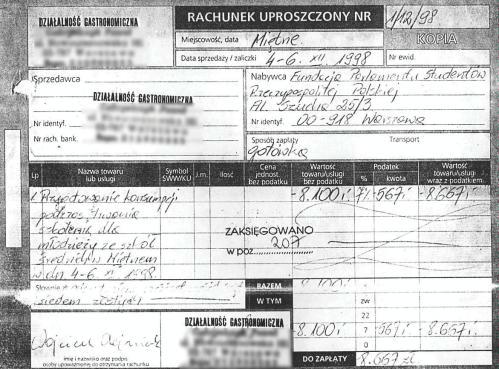 DZIAŁALNOŚĆ GASTRONOMICZNA
RACHUNEK UPROSZCZONY NR 1/12/98
Miejscowość, data Miętne
KOPIA
Data sprzedaży / zaliczki 4-6. XII 1998
Nr ewid.
Sprzedawca
DZIAŁALNOŚĆ GASTRONOMICZNA
Nr identyf.
Nr rach. bank.
Nabywca Fundacja Parlamentu Studentów
Rzeczypospolitej Polskiej
Al. Szucha 25/3
Nr identyf. 00-918 Warszawa
Sposób zapłaty Transport
gotówką
Lp Nazwa towaru lub usługi Symbol SWW/KU J.m. Ilość Cena jednost. bez podatku Wartość towaru/usługi bez podatku Podatek % kwota Wartość towaru/usługi wraz z podatkiem
1 Przygotowanie konsumpcji -8.100,- 7% -567,- -8.667,-
podczas trwania
szkolenia dla
młodzieży ze szkół
średnich w Miętnem
w dn 4-6. XII 1998.
ZAKSIĘGOWANO
w poz. 207
Słownie
siedem złotych
RAZEM 8.100,-
W TYM zw
22
-8.100,- 7 -567,- -8.667,-
0
DZIAŁALNOŚĆ GASTRONOMICZNA
imię i nazwisko oraz podpis
osoby upoważnionej do otrzymania rachunku
DO ZAPŁATY 8.667 zł